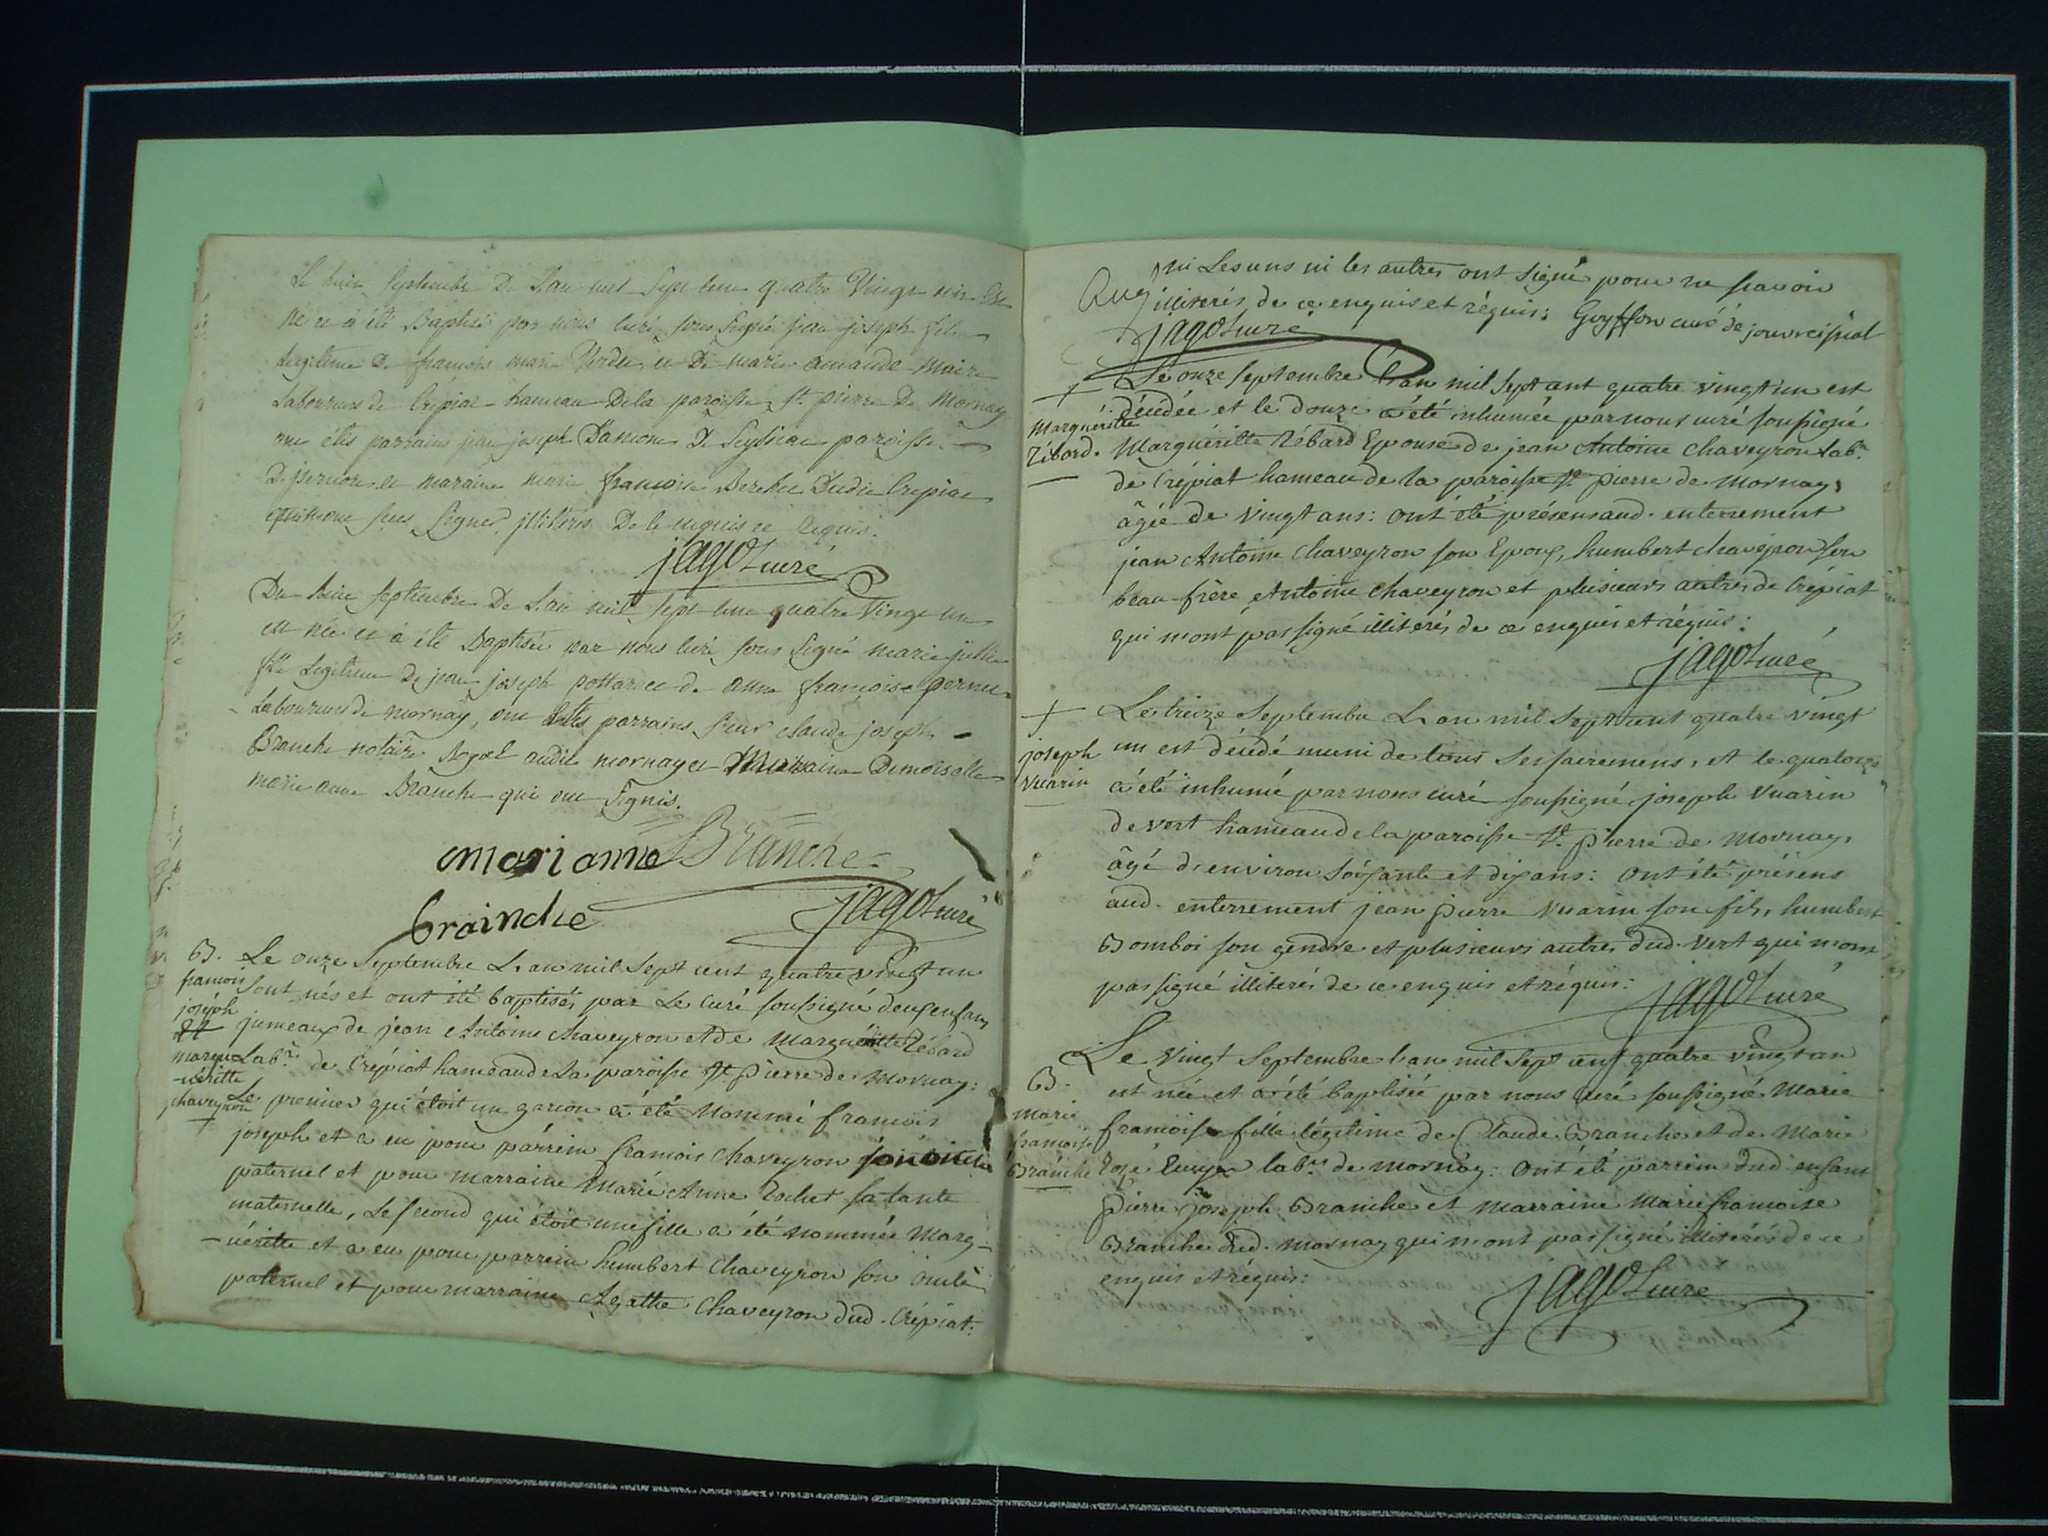 Le huit Septembre De L'an mil Sept Cent quatre Vingt un Est
né et à été Baptisé par nous Curé sous Signé jean joseph fils
Legitime De françois marie et De marie amande Maire
Laboureurs de Crépiat hameau De la paroisse St. pierre De Mornay
ont étés parrains jean joseph De paroisse
De et maraine marie francoise Dudit Crépiat
qui n'ont sceu Signer illiterés De ce enquis et requis.
jagot curé
Du huit Septembre De L'an mil Sept Cent quatre Vingt un
est née et à été Baptisée par nous Curé sous Signé marie julie
fille Legitime De jean joseph et de anne françoise
Laboureurs de mornay, ont étés parrains Sieur claude joseph
Branche notaire Royal audit mornay et Maraine Demoiselle
marie anne Branche qui ont Signés.
marianne Branche
brainche
jagot curé
B. Le onze Septembre L'an mil Sept cent quatre vingt un
francois sont nés et ont été baptisés par Le Curé soussigné deux enfans
joséph jumeaux de jean Antoine chaveyron et de Marguéritte Rébard
et
margu- Lab.rs de Crépiat hameau de La paroisse St. Pierre de Mornay:
-eritte Le premier qui étoit un garcon a été nommé francois
chaveyron
joseph et a eu pour párrein francois chaveyron son oncle
paternel et pour marraine Marie Anne Rochet sa tante
maternelle, Le second qui étoit une fille a été nommée Marg-
-uéritte et a eu pour parrein humbert Chaveyron son oncle
paternel et pour marraine Agathe Chaveyron dud. Crépiat:
ni Les uns ni les autres ont signé pour ne scavoir
illiterés de ce enquis et réquis: Guyffon curé de
jagot curé
+ Le onze Septembre L'an mil Sept cent quatre vingt un est
décédée et le douze a été inhumée par nous curé soussigné
Marguéritte
Rébard. Marguéritte Rébard Epouse de jean Antoine Chaveyron Lab.r
de Crépiat hameau de la paroisse St. pierre de Mornay,
âgée de vingt ans: ont été présens aud. enterrement
jean Antoine Chaveyron son Epoux, humbert chaveyron son
beau-frère Antoine Chaveyron et plusieurs autres de Crépiat
qui n'ont pas signé illiterés de ce enquis et réquis:
jagot curé
+ Le treize Septembre L'an mil Sept cent quatre vingt
joseph un est décédé muni de tous Ses sacremens, et le quatorze
vuarin a été inhumé par nous curé soussigné joseph Vuarin
de vert hameau de la paroisse St. Pierre de Mornay,
âgé d'environ soixante et dix ans: ont été présens
aud. enterrement jean Pierre Vuarin son fils, humbert
Bomboi son gendre et plusieurs autres dud. Vert qui n'ont
pas signé illiterés de ce enquis et réquis:
jagot curé
Le vingt Septembre L'an mil Sept cent quatre vingt un
B. est née et a été baptisée par nous curé soussigné Marie
Marie
francoise francoise fille légitime de Claude Branche et de Marie
Branche Rosé lab.rs de Mornay: ont été parrein dud. enfant
Pierre joseph Branche et Marraine Marie francoise
Branche dud. Mornay qui n'ont pas signé illiterés de ce
enquis et réquis:
jagot curé